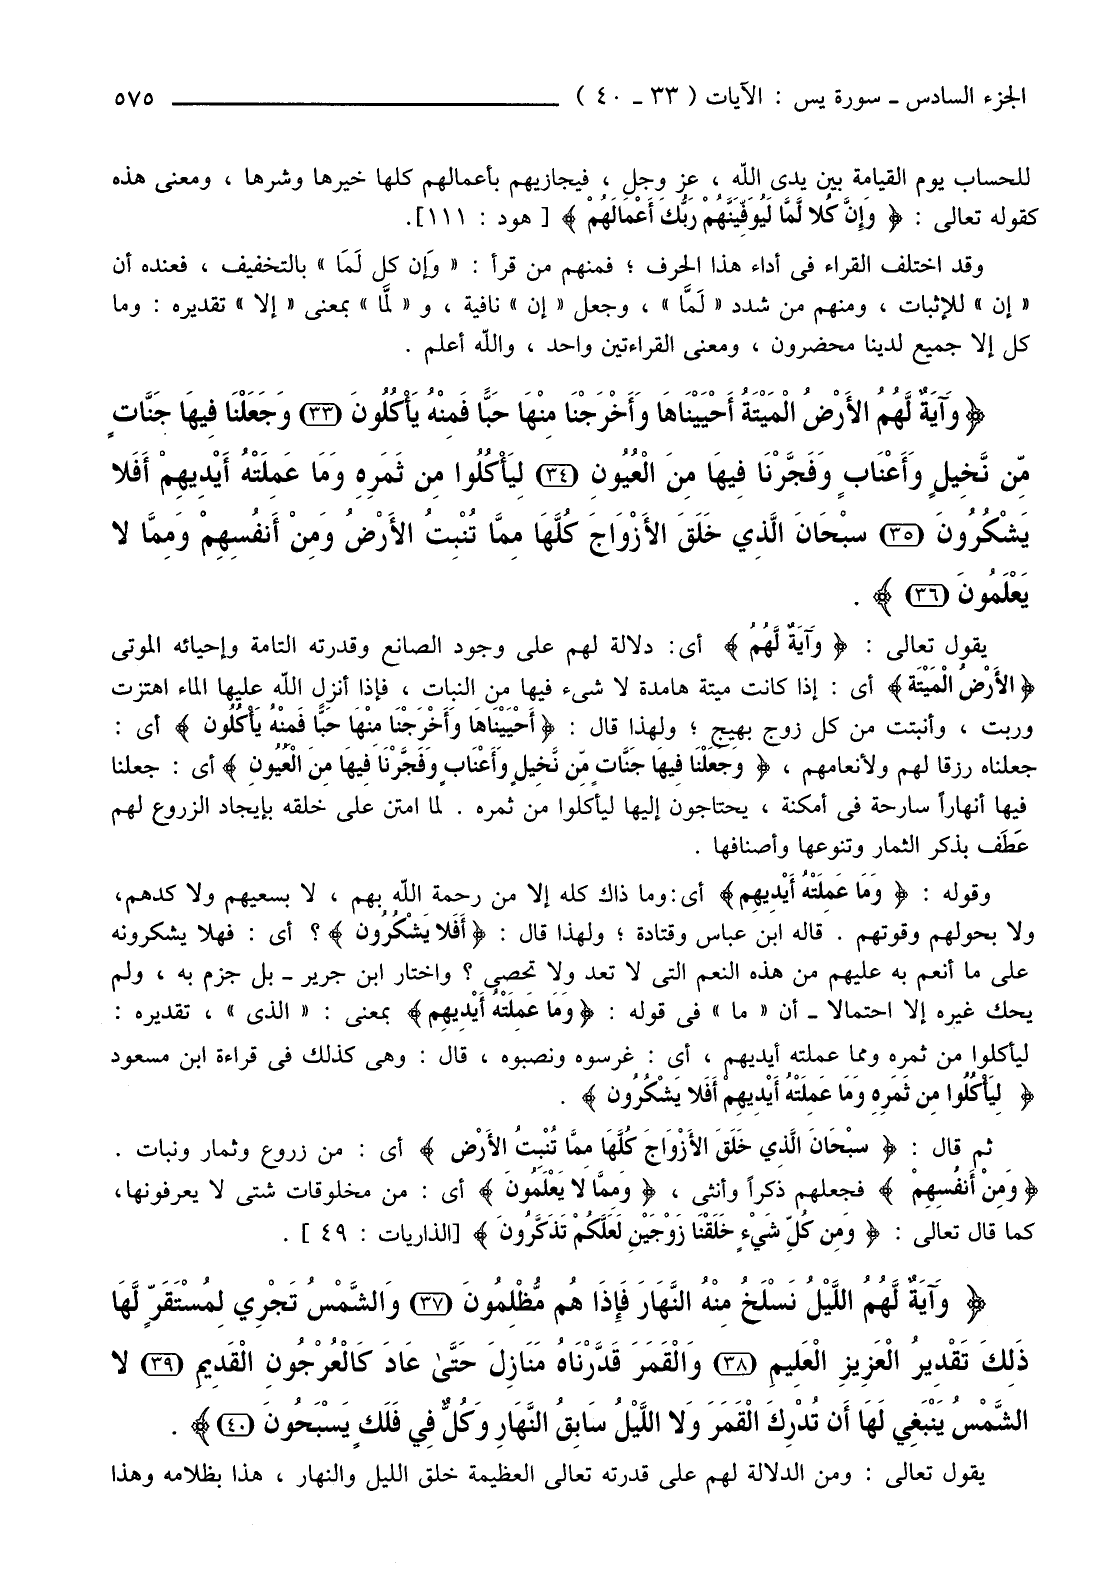 الجزء السادس ـ سورة يس : الآيات ( ٣٣ ـ ٤٠ ) ٥٧٥
للحساب يوم القيامة بين يدى اللّه ، عز وجل ، فيجازيهم بأعمالهم كلها خيرها وشرها ، ومعنى هذه
كقوله تعالى : ﴿ وَإِنَّ كُلا لَّمَّا لَيُوَفِّيَنَّهُمْ رَبُّكَ أَعْمَالَهُمْ ﴾ [ هود : ١١١].
وقد اختلف القراء فى أداء هذا الحرف ؛ فمنهم من قرأ : « وَإن كل لَمَا » بالتخفيف ، فعنده أن
« إن » للإثبات ، ومنهم من شدد « لَمَّا » ، وجعل « إن » نافية ، و « لمَّا » بمعنى « إلا » تقديره : وما
كل إلا جميع لدينا محضرون ، ومعنى القراءتين واحد ، واللّه أعلم .
﴿ وَآيَةٌ لَّهُمُ الأَرْضُ الْمَيْتَةُ أَحْيَيْنَاهَا وَأَخْرَجْنَا مِنْهَا حَبًّا فَمِنْهُ يَأْكُلُونَ (٣٣) وَجَعَلْنَا فِيهَا جَنَّاتٍ
مِّن نَّخِيلٍ وَأَعْنَابٍ وَفَجَّرْنَا فِيهَا مِنَ الْعُيُونِ (٣٤) لِيَأْكُلُوا مِن ثَمَرِهِ وَمَا عَمِلَتْهُ أَيْدِيهِمْ أَفَلا
يَشْكُرُونَ (٣٥) سبْحَانَ الَّذِي خَلَقَ الأَزْوَاجَ كُلَّهَا مِمَّا تُنْبِتُ الأَرْضُ وَمِنْ أَنفُسِهِمْ وَمِمَّا لا
يَعْلَمُونَ (٣٦) ﴾ .
يقول تعالى : ﴿ وَآيَةٌ لَّهُمُ ﴾ أى: دلالة لهم على وجود الصانع وقدرته التامة وإحيائه الموتى
﴿ الأَرْضُ الْمَيْتَة﴾ أى : إذا كانت ميتة هامدة لا شىء فيها من النبات ، فإذا أنزل اللّه عليها الماء اهتزت
وربت ، وأنبتت من كل زوج بهيج ؛ ولهذا قال : ﴿أَحْيَيْنَاهَا وَأَخْرَجْنَا مِنْهَا حَبًّا فَمِنْهُ يَأْكُلُون ﴾ أى :
جعلناه رزقا لهم ولأنعامهم ، ﴿ وَجَعَلْنَا فِيهَا جَنَّاتٍ مِّن نَّخِيلٍ وَأَعْنَابٍ وَفَجَّرْنَا فِيهَا مِنَ الْعُيُون ﴾ أى : جعلنا
فيها أنهاراً سارحة فى أمكنة ، يحتاجون إليها ليأكلوا من ثمره . لما امتن على خلقه بإيجاد الزروع لهم
عَطَف بذكر الثمار وتنوعها وأصنافها .
وقوله : ﴿ وَمَا عَمِلَتْهُ أَيْدِيهِم﴾ أى:وما ذاك كله إلا من رحمة اللّه بهم ، لا بسعيهم ولا كدهم،
ولا بحولهم وقوتهم . قاله ابن عباس وقتادة ؛ ولهذا قال : ﴿أَفَلا يَشْكُرُون ﴾؟ أى : فهلا يشكرونه
على ما أنعم به عليهم من هذه النعم التى لا تعد ولا تحصى ؟ واختار ابن جرير ـ بل جزم به ، ولم
يحك غيره إلا احتمالا ـ أن « ما » فى قوله : ﴿وَمَا عَمِلَتْهُ أَيْدِيهِم﴾ بمعنى : « الذى » ، تقديره :
ليأكلوا من ثمره ومما عملته أيديهم ، أى : غرسوه ونصبوه ، قال : وهى كذلك فى قراءة ابن مسعود
﴿ لِيَأْكُلُوا مِن ثَمَرِهِ وَمَا عَمِلَتْهُ أَيْدِيهِمْ أَفَلا يَشْكُرُون ﴾ .
ثم قال : ﴿ سبْحَانَ الَّذِي خَلَقَ الأَزْوَاجَ كُلَّهَا مِمَّا تُنْبِتُ الأَرْض ﴾ أى : من زروع وثمار ونبات .
﴿ وَمِنْ أَنفُسِهِمْ ﴾ فجعلهم ذكراً وأنثى ، ﴿ وَمِمَّا لا يَعْلَمُون ﴾ أى : من مخلوقات شتى لا يعرفونها،
كما قال تعالى : ﴿ وَمِن كُلِّ شَيْءٍ خَلَقْنَا زَوْجَيْنِ لَعَلَّكُمْ تَذَكَّرُونَ ﴾ [الذاريات : ٤٩ ] .
﴿ وَآيَةٌ لَّهُمُ اللَّيْلُ نَسْلَخُ مِنْهُ النَّهَارَ فَإِذَا هُم مُّظْلِمُونَ (٣٧) وَالشَّمْسُ تَجْرِي لِمُسْتَقَرٍّ لَّهَا
ذَلِكَ تَقْدِيرُ الْعَزِيزِ الْعَلِيمِ (٣٨) وَالْقَمَرَ قَدَّرْنَاهُ مَنَازِلَ حَتَّىٰ عَادَ كَالْعُرْجُونِ الْقَدِيمِ (٣٩) لا
الشَّمْسُ يَنْبَغِي لَهَا أَن تُدْرِكَ الْقَمَرَ وَلا اللَّيْلُ سَابِقُ النَّهَارِ وَكُلٌّ فِي فَلَكٍ يَسْبَحُونَ (٤٠)﴾ .
يقول تعالى : ومن الدلالة لهم على قدرته تعالى العظيمة خلق الليل والنهار ، هذا بظلامه وهذا